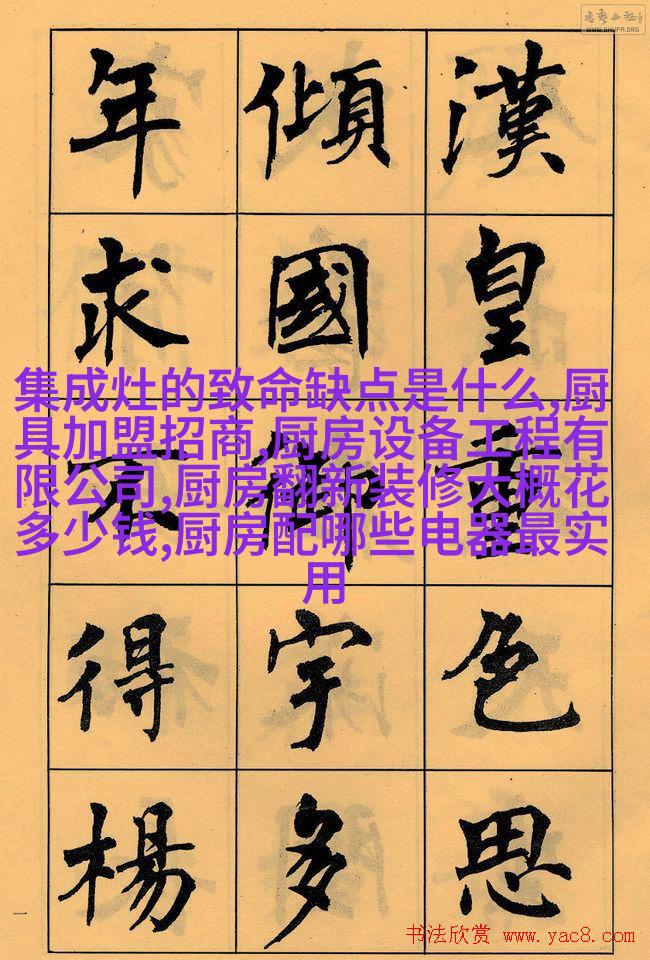 漢皇重色思
傾國御宇多
年求不得楊
集成灶的致命缺点是什么,厨
具加盟招商,厨房设备工程有
限公司,厨房翻新装修大概花
多少钱,厨房配哪些电器最实
用
一
WWW.SHUFA.ORG
书法欣赏 www.yac8.com